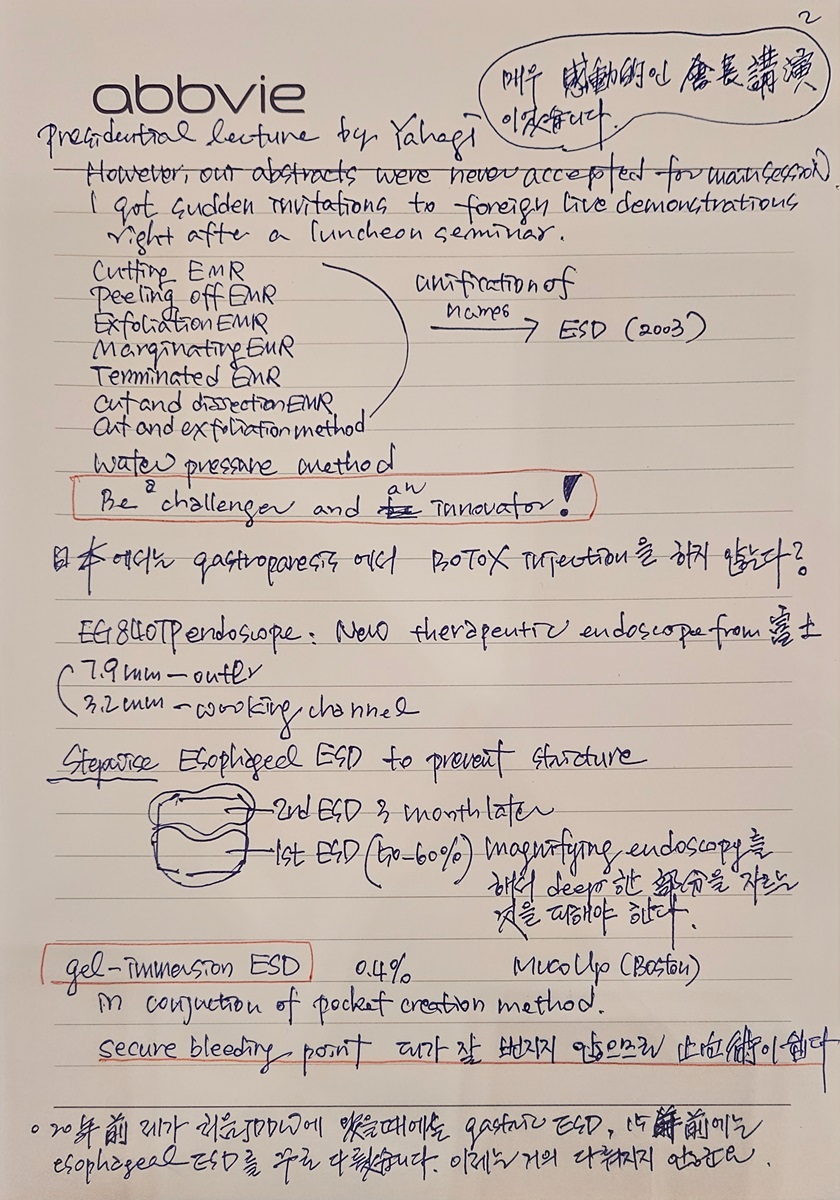 2
abbvie
매우 感動的인 會長講演
이었습니다.
Presidential lecture by Yahagi
However, our abstracts were never accepted for main session
I got sudden invitations to foreign live demonstrations
right after a luncheon seminar.
Cutting EMR
Peeling off EMR
Exfoliation EMR
Marginating EMR
Terminated EMR
Cut and dissection EMR
Cut and exfoliation method
unification of
names
ESD (2003)
Water pressure method
Be a challenger and an innovator!
日本에서는 gastroparesis에서 BOTOX injection을 하지 않는다?
EG840TP endoscope: New therapeutic endoscope from 富士
7.9mm - outer
3.2mm - working channel
Stepwise Esophageel ESD to prevent stricture
2nd ESD 3 month later
1st ESD (50-60%) magnifying endoscopy를
해서 deep 한 部分을 자르는
것을 피해야 한다.
gel-immersion ESD 0.4% MucoUp (Boston)
in conjuction of pocket creation method.
secure bleeding point 피가 잘 번지지 않으므로 止血術이 쉽다
○ 20年前 제가 처음 JDDW에 왔을때에는 gastric ESD, 15年前에는
esophageal ESD를 주로 다뤘습니다. 이제는 거의 다뤄지지 않는군요.